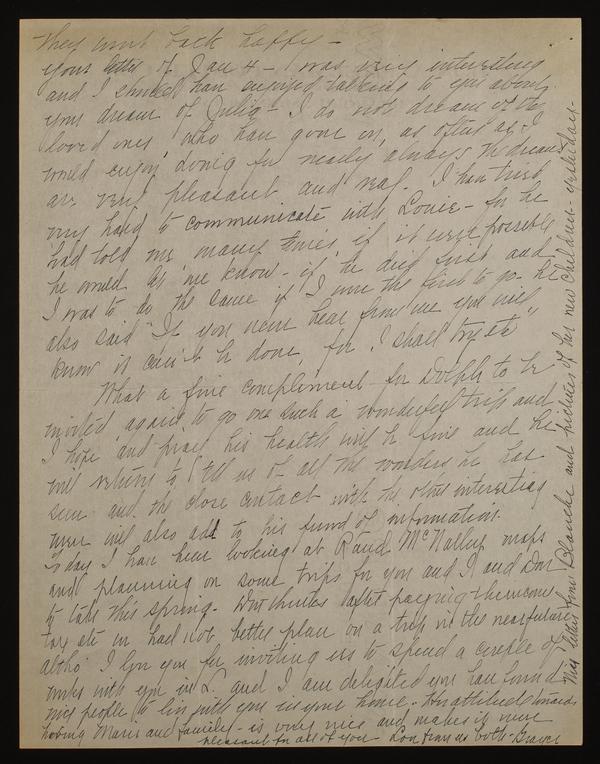 They went back happy -
Your letter of Jan 4 - was very interesting
and I should have enjoyed talking to you about
your dream of Julia - I do not dream of the
loved ones who have gone on, as often as I
would enjoy doing for nearly always the dreams
are very pleasant and real. I have tried
very hard to communicate with Louie - for he
had told me many times if it were possible
he would let me know - if he died first and
I was to do the same if I was the first to go - He
also said "If you never hear from me you will
know it can't be done, for I shall try etc"
What a fine compliment for Dolph to be
invited again to go on such a wonderful trip and
I hope and pray his health will be fine and he
will return to tell us of all the wonders he has
seen and the close contact with the other interesting
men will also add to his fund of information.
Today I have been looking at Rand McNally maps
and planning on some trips for you and I and Don
to take this spring - Don thinks after paying the income
tax etc we had not better plan on a trip in the near future
altho' I love you for inviting us to spend a couple of
weeks with you in and I am delighted you have found
nice people to live with you in your home - attitude towards
having Marie and family - is very nice and makes it more
pleasant for all of you - Love from us both - Grayce
Nice letter from Blanche and pictures of her new children - yesterday -